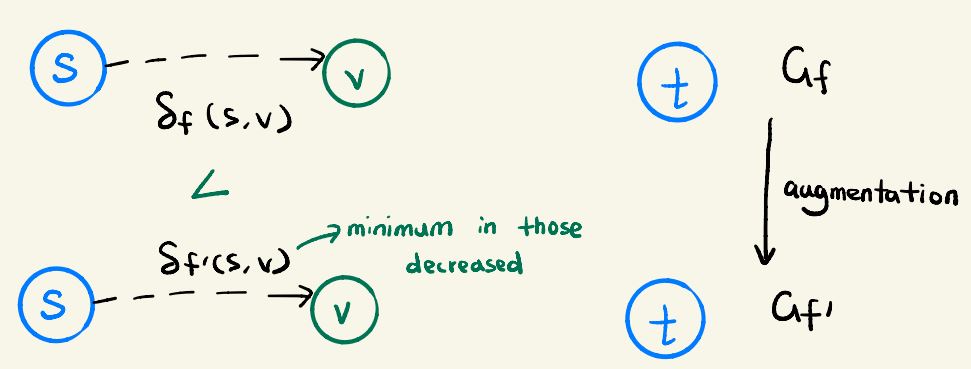 S v t G_f
δ_f (s,v)
<
augmentation
minimum in those
decreased
δ_f'(s,v)
S v t G_f'